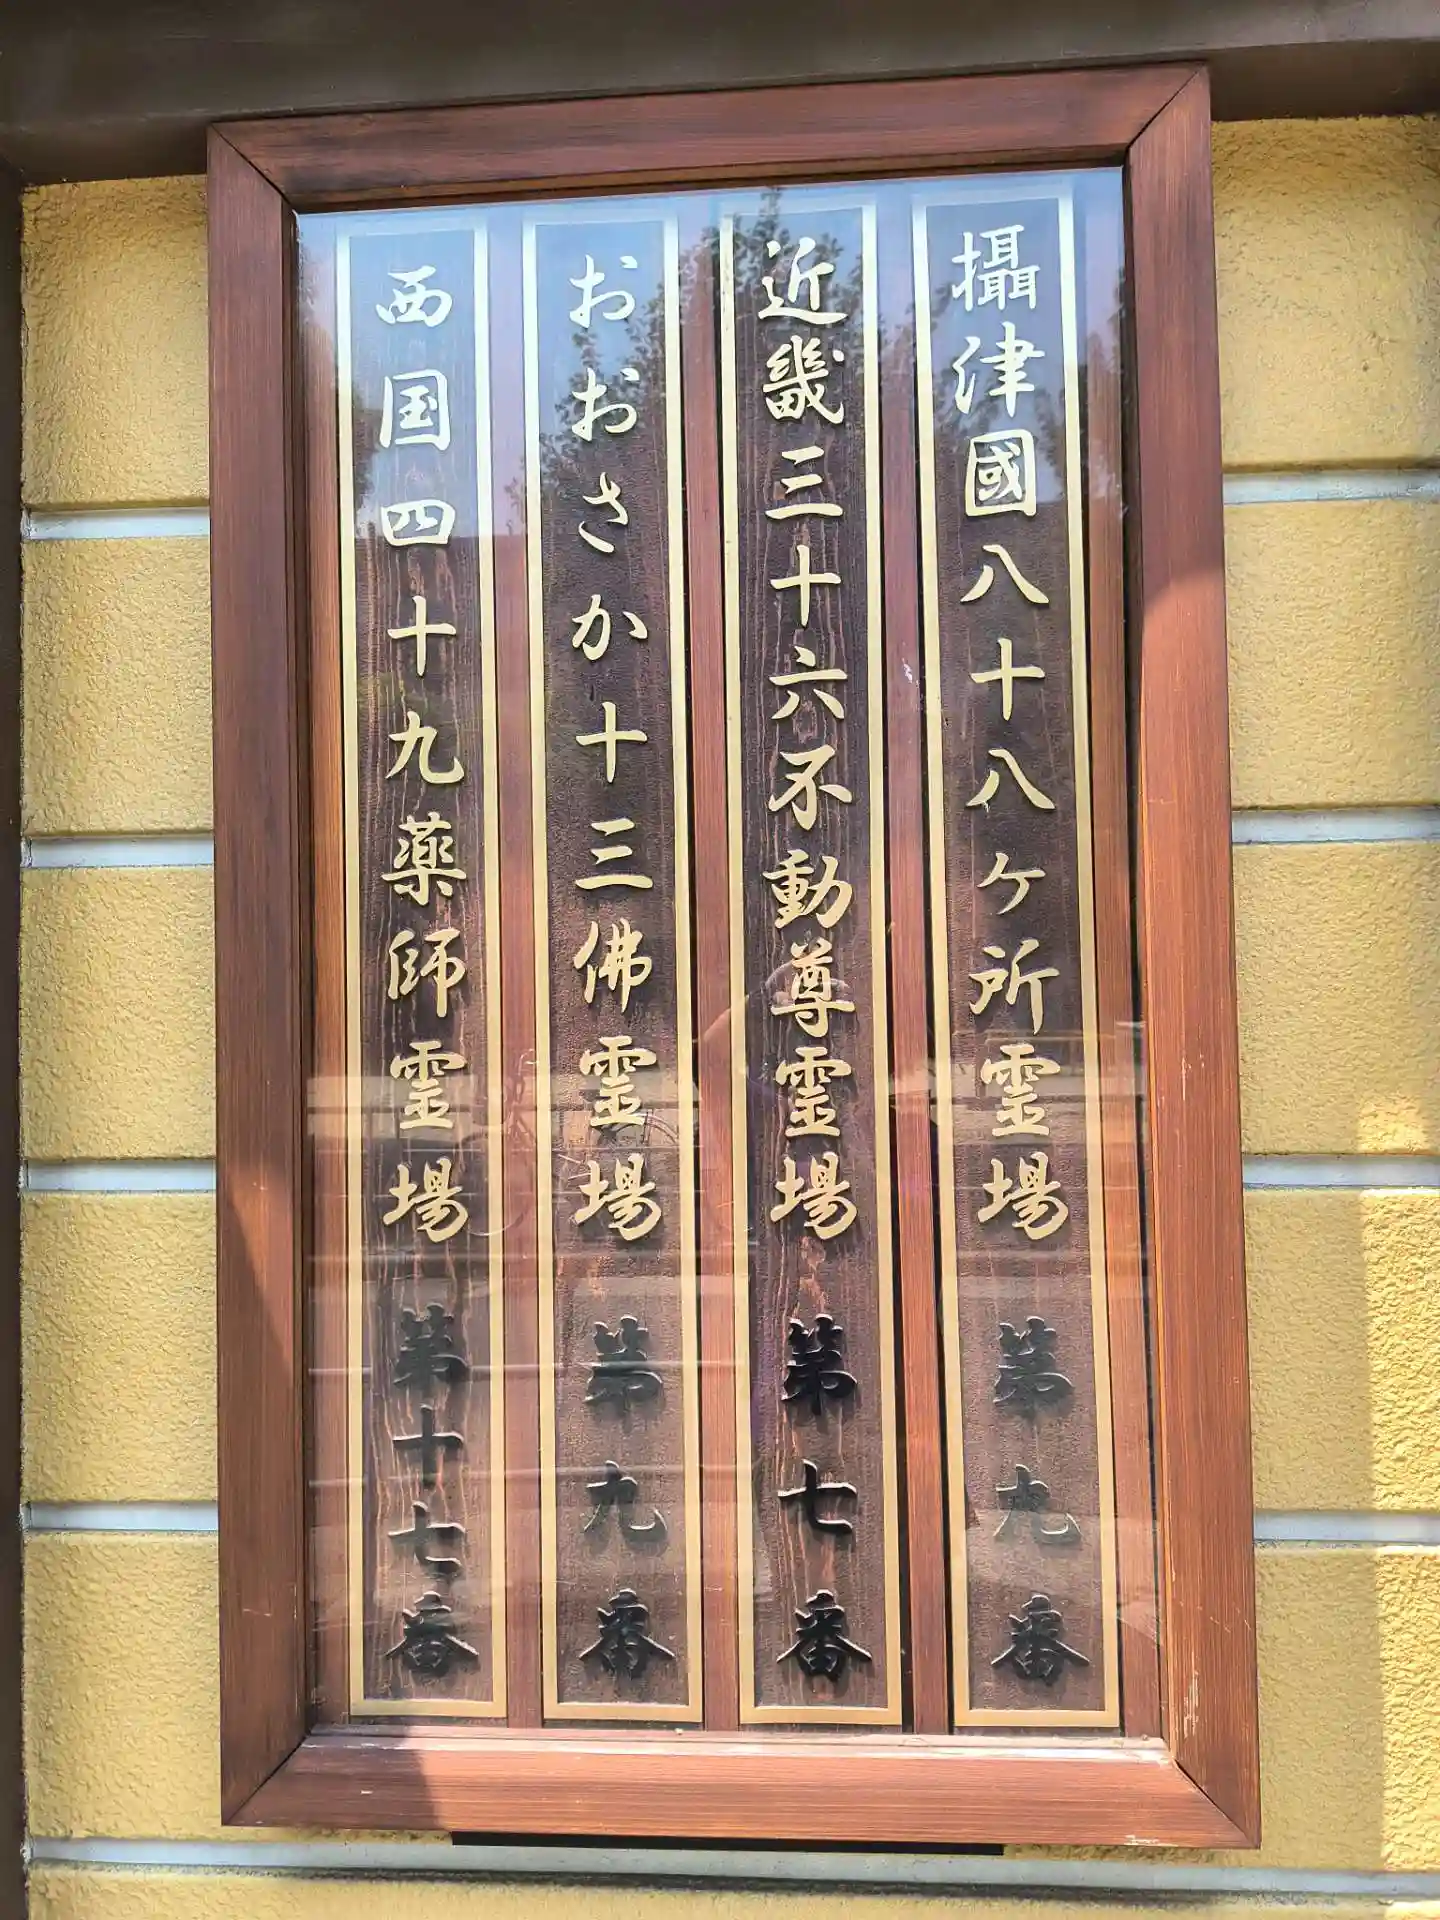 攝津國八十八ケ所霊場 第九番
近畿三十六不動尊霊場 第七番
おおさか十三佛霊場 第九番
西国四十九薬師霊場 第十七番